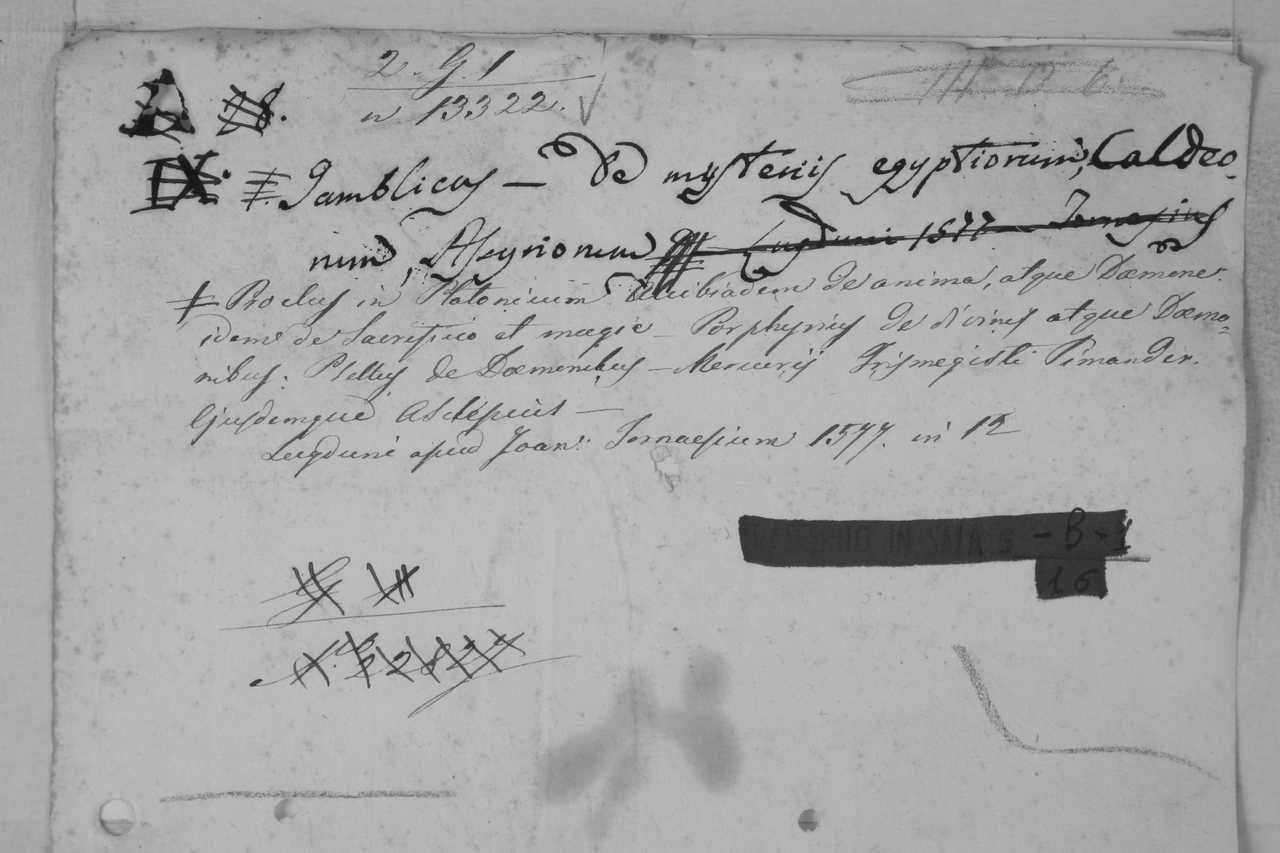 2. G. 1
n 13322.
III B 6
IX. Jamblicus — De mysteriis egyptiorum, Caldeo-
rum, Assyriorum Lugduni 1577 — Tornesius
Proclus in Platonicum Alcibiadem de anima, atque Dæmone.
idem de Sacrificio et magie — Porphyrius de divinis atque Dæmo=
nibus. Psellus de Dæmonibus — Mercurij Trismegisti Pimander.
Ejusdemque Asclepius —
Lugduni apud Joan: Tornaesium 1577. in 12
TRASFERITO IN SALA 5 - B - 1
16
N. 22822